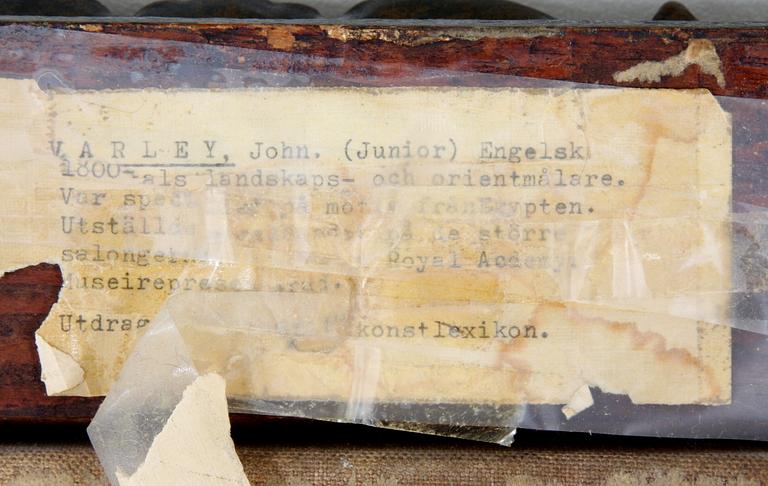 VARLEY, John. (Junior) Engelsk
1800-als landskaps- och orientmålare.
Var på motiv frånEgypten.
Utställde på de större
Royal Acdemy.

Utdrag konstlexikon.